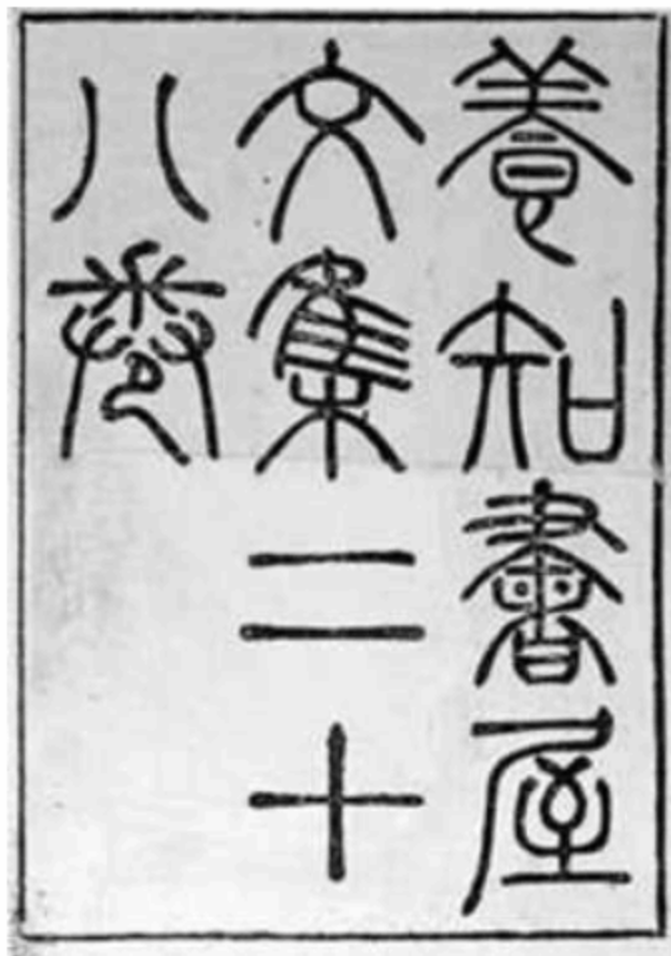 養知書屋
文集二十
八卷